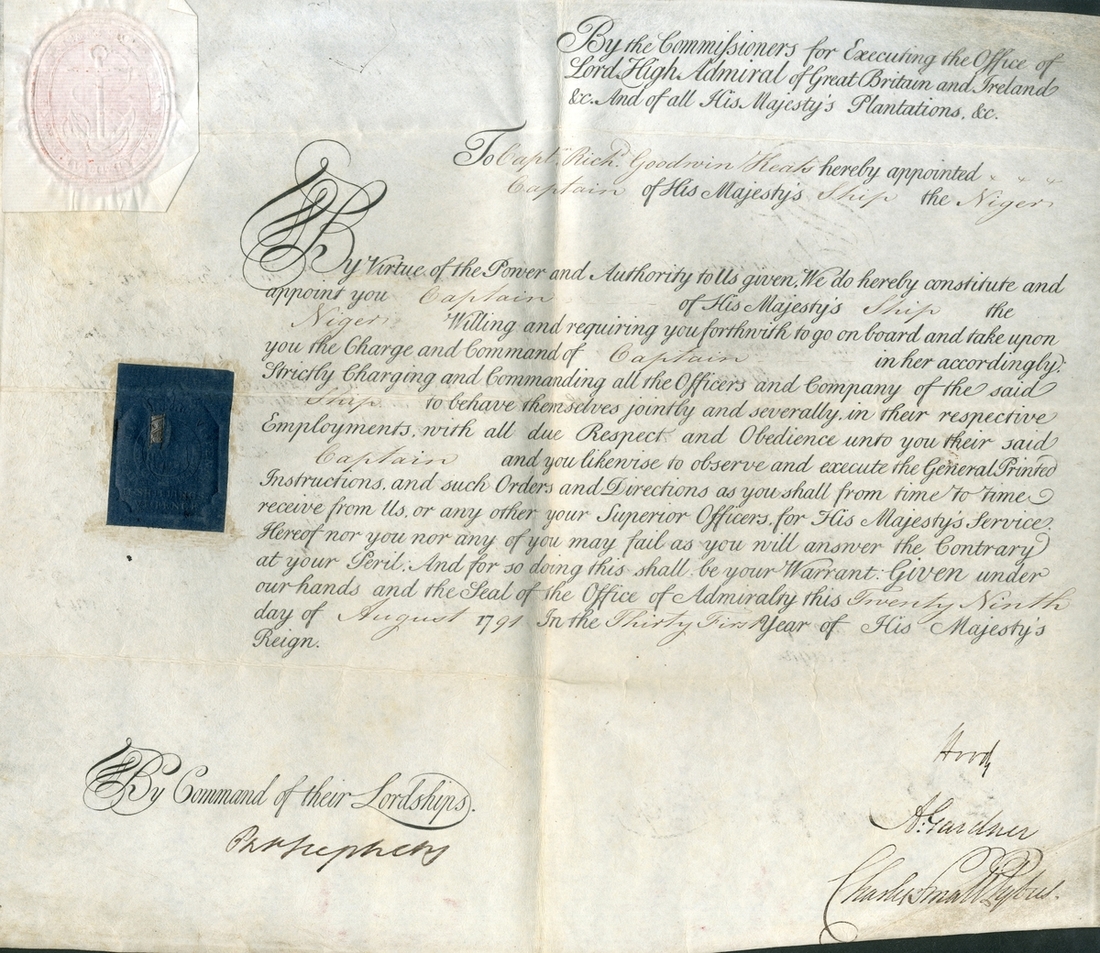 By the Commissioners for Executing the Office of
Lord High Admiral of Great Britain and Ireland
&c. And of all His Majesty's Plantations, &c.
To Capt. Richd. Goodwin Keats hereby appointed
Captain of His Majesty's Ship the Niger
By Virtue of the Power and Authority to Us given, We do hereby constitute and
appoint you Captain of His Majesty's Ship the
Niger Willing and requiring you forthwith to go on board and take upon
you the Charge and Command of Captain in her accordingly;
Strictly Charging and Commanding all the Officers and Company of the said
Ship to behave themselves jointly and severally, in their respective
Employments, with all due Respect and Obedience unto you their said
Captain and you likewise to observe and execute the General Printed
Instructions, and such Orders and Directions as you shall from time to time
receive from Us, or any other your Superior Officers, for His Majesty's Service.
Hereof nor you nor any of you may fail as you will answer the Contrary
at your Peril: And for so doing this shall be your Warrant: Given under
our hands and the Seal of the Office of Admiralty this Twenty Ninth
day of August 1791 In the Thirty First Year of His Majesty's
Reign.
Hood
A: Gardner
Charles Small Pybus.
By Command of their Lordships.
Ph Stephens